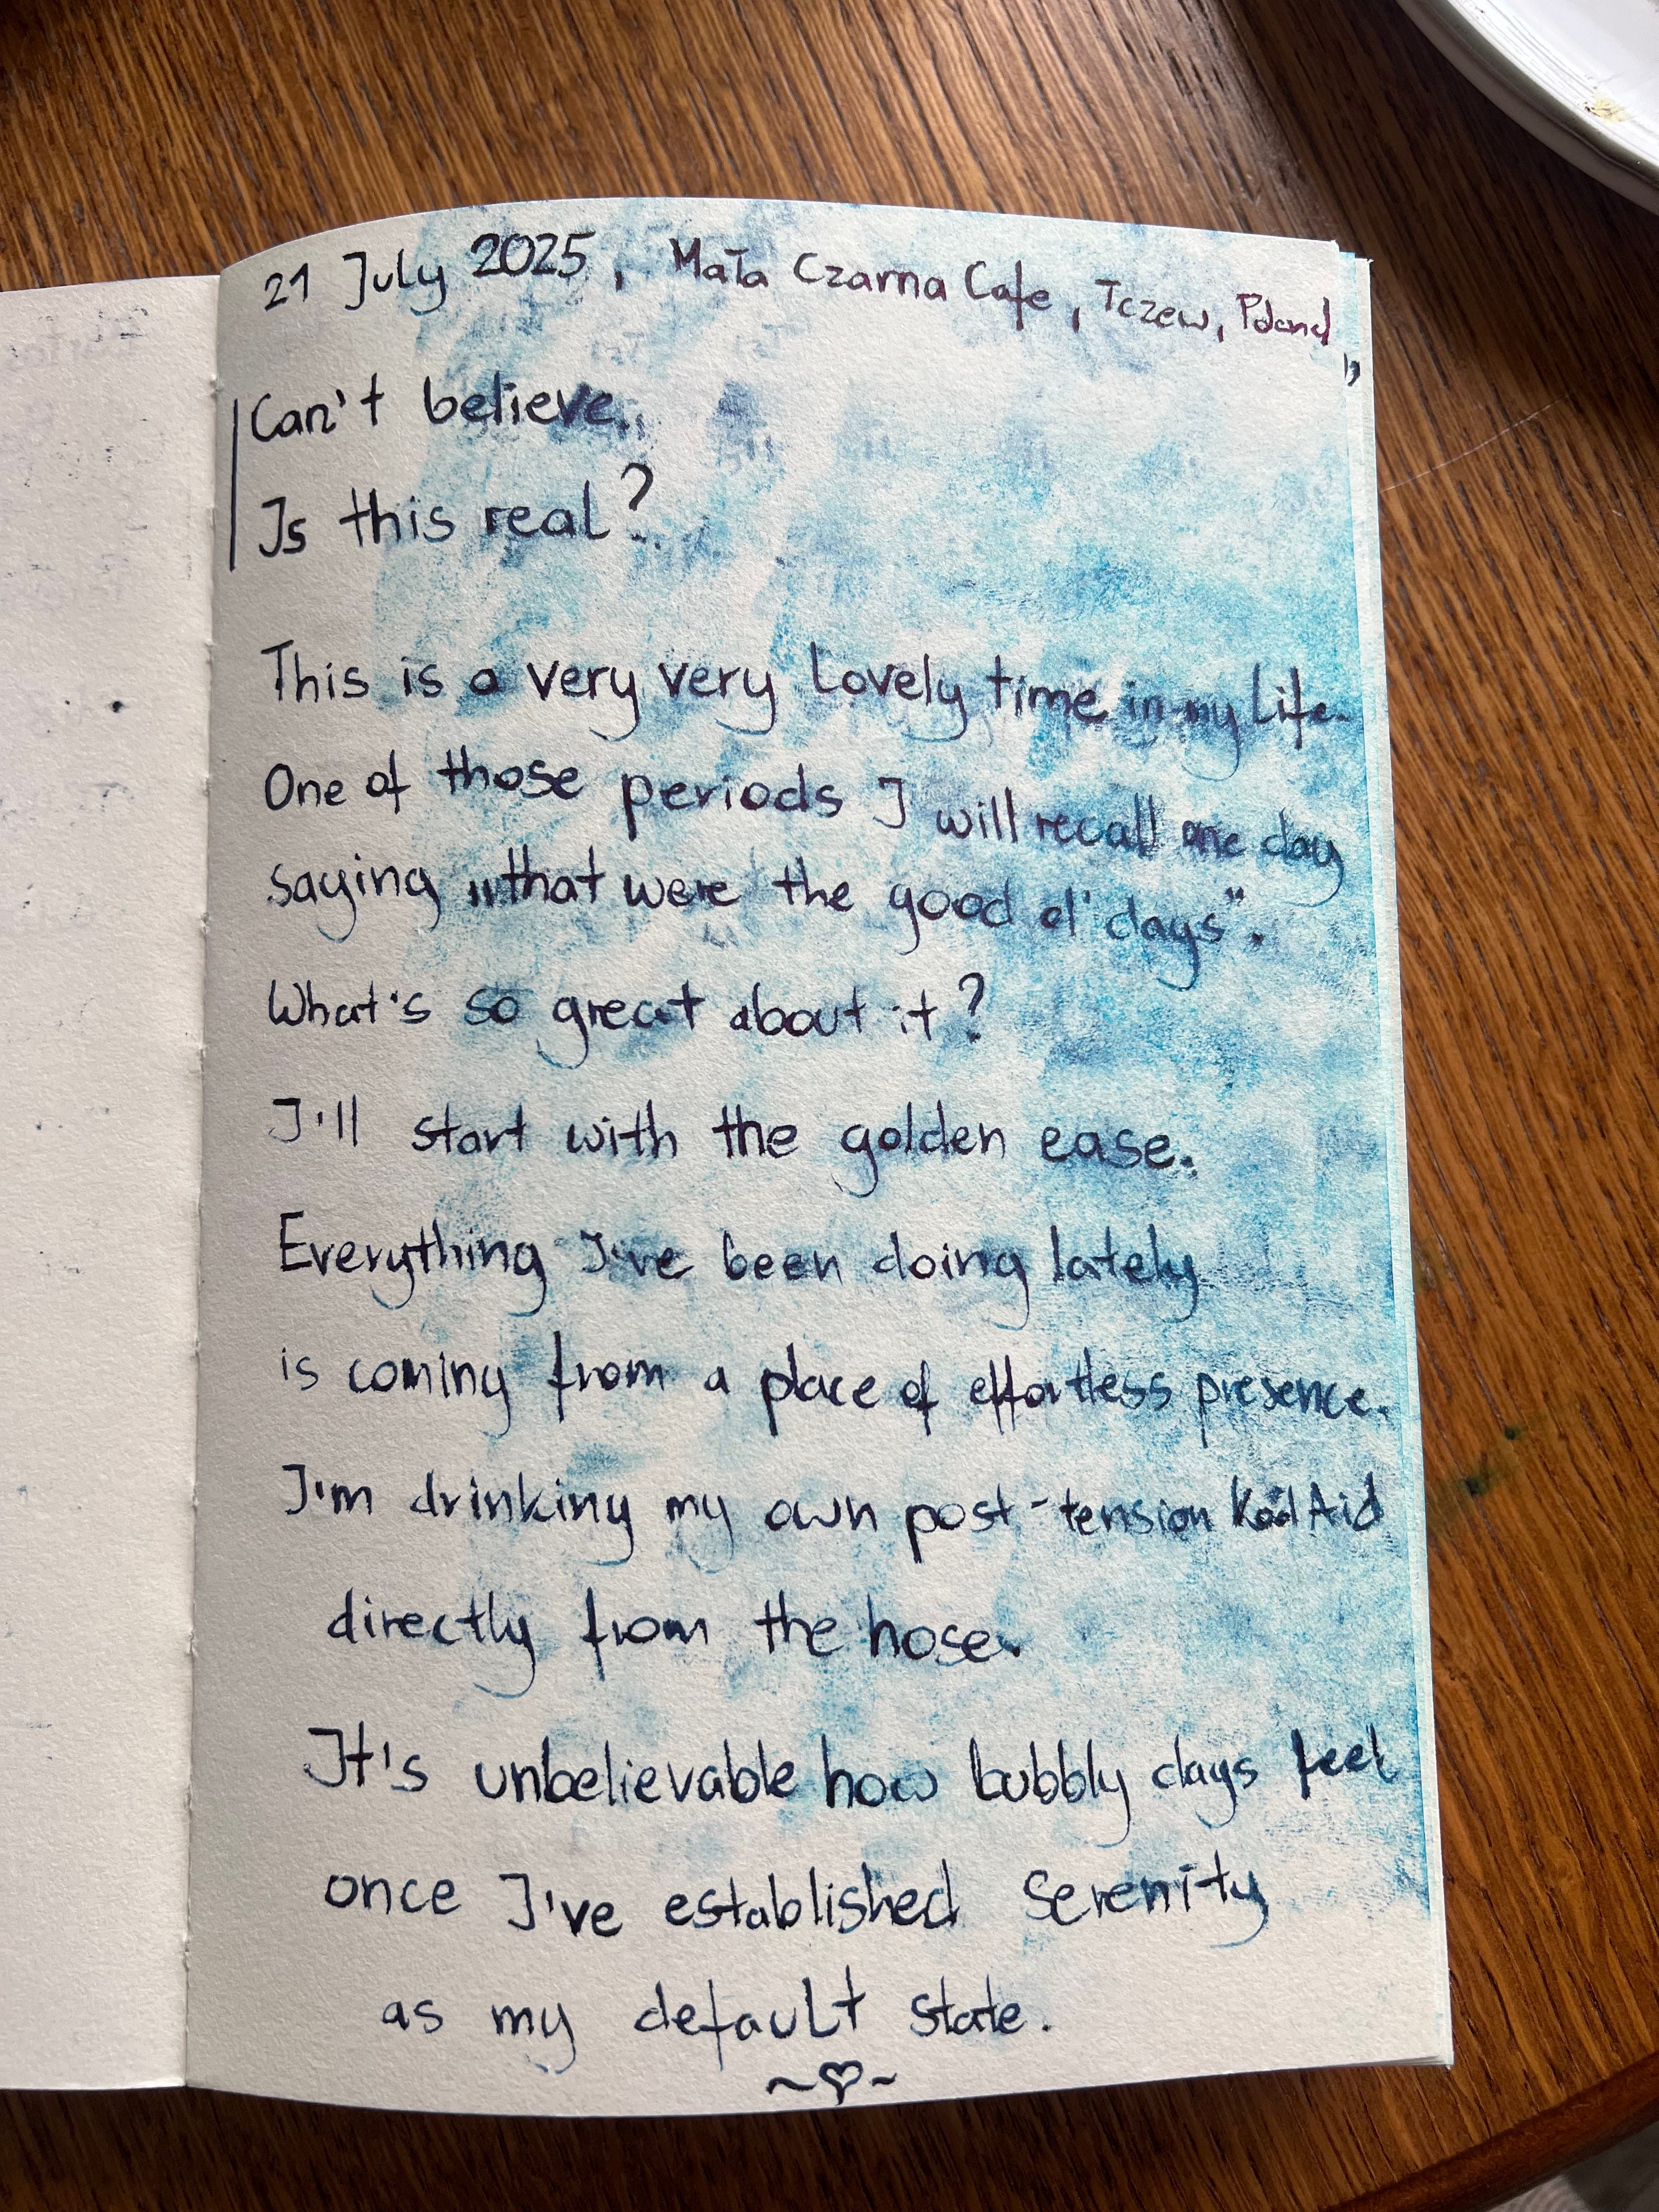 21 July 2025, Mała Czarna Cafe, Tczew, Poland
Can't believe.
Is this real?
This is a very very lovely time in my life.
One of those periods I will recall one day
saying „that were the good ol' days".
What's so great about it?
I'll start with the golden ease.
Everything I've been doing lately
is coming from a place of effortless presence.
I'm drinking my own post-tension Kool Aid
directly from the hose.
It's unbelievable how bubbly days feel
once I've established serenity
as my default state.
~♡~